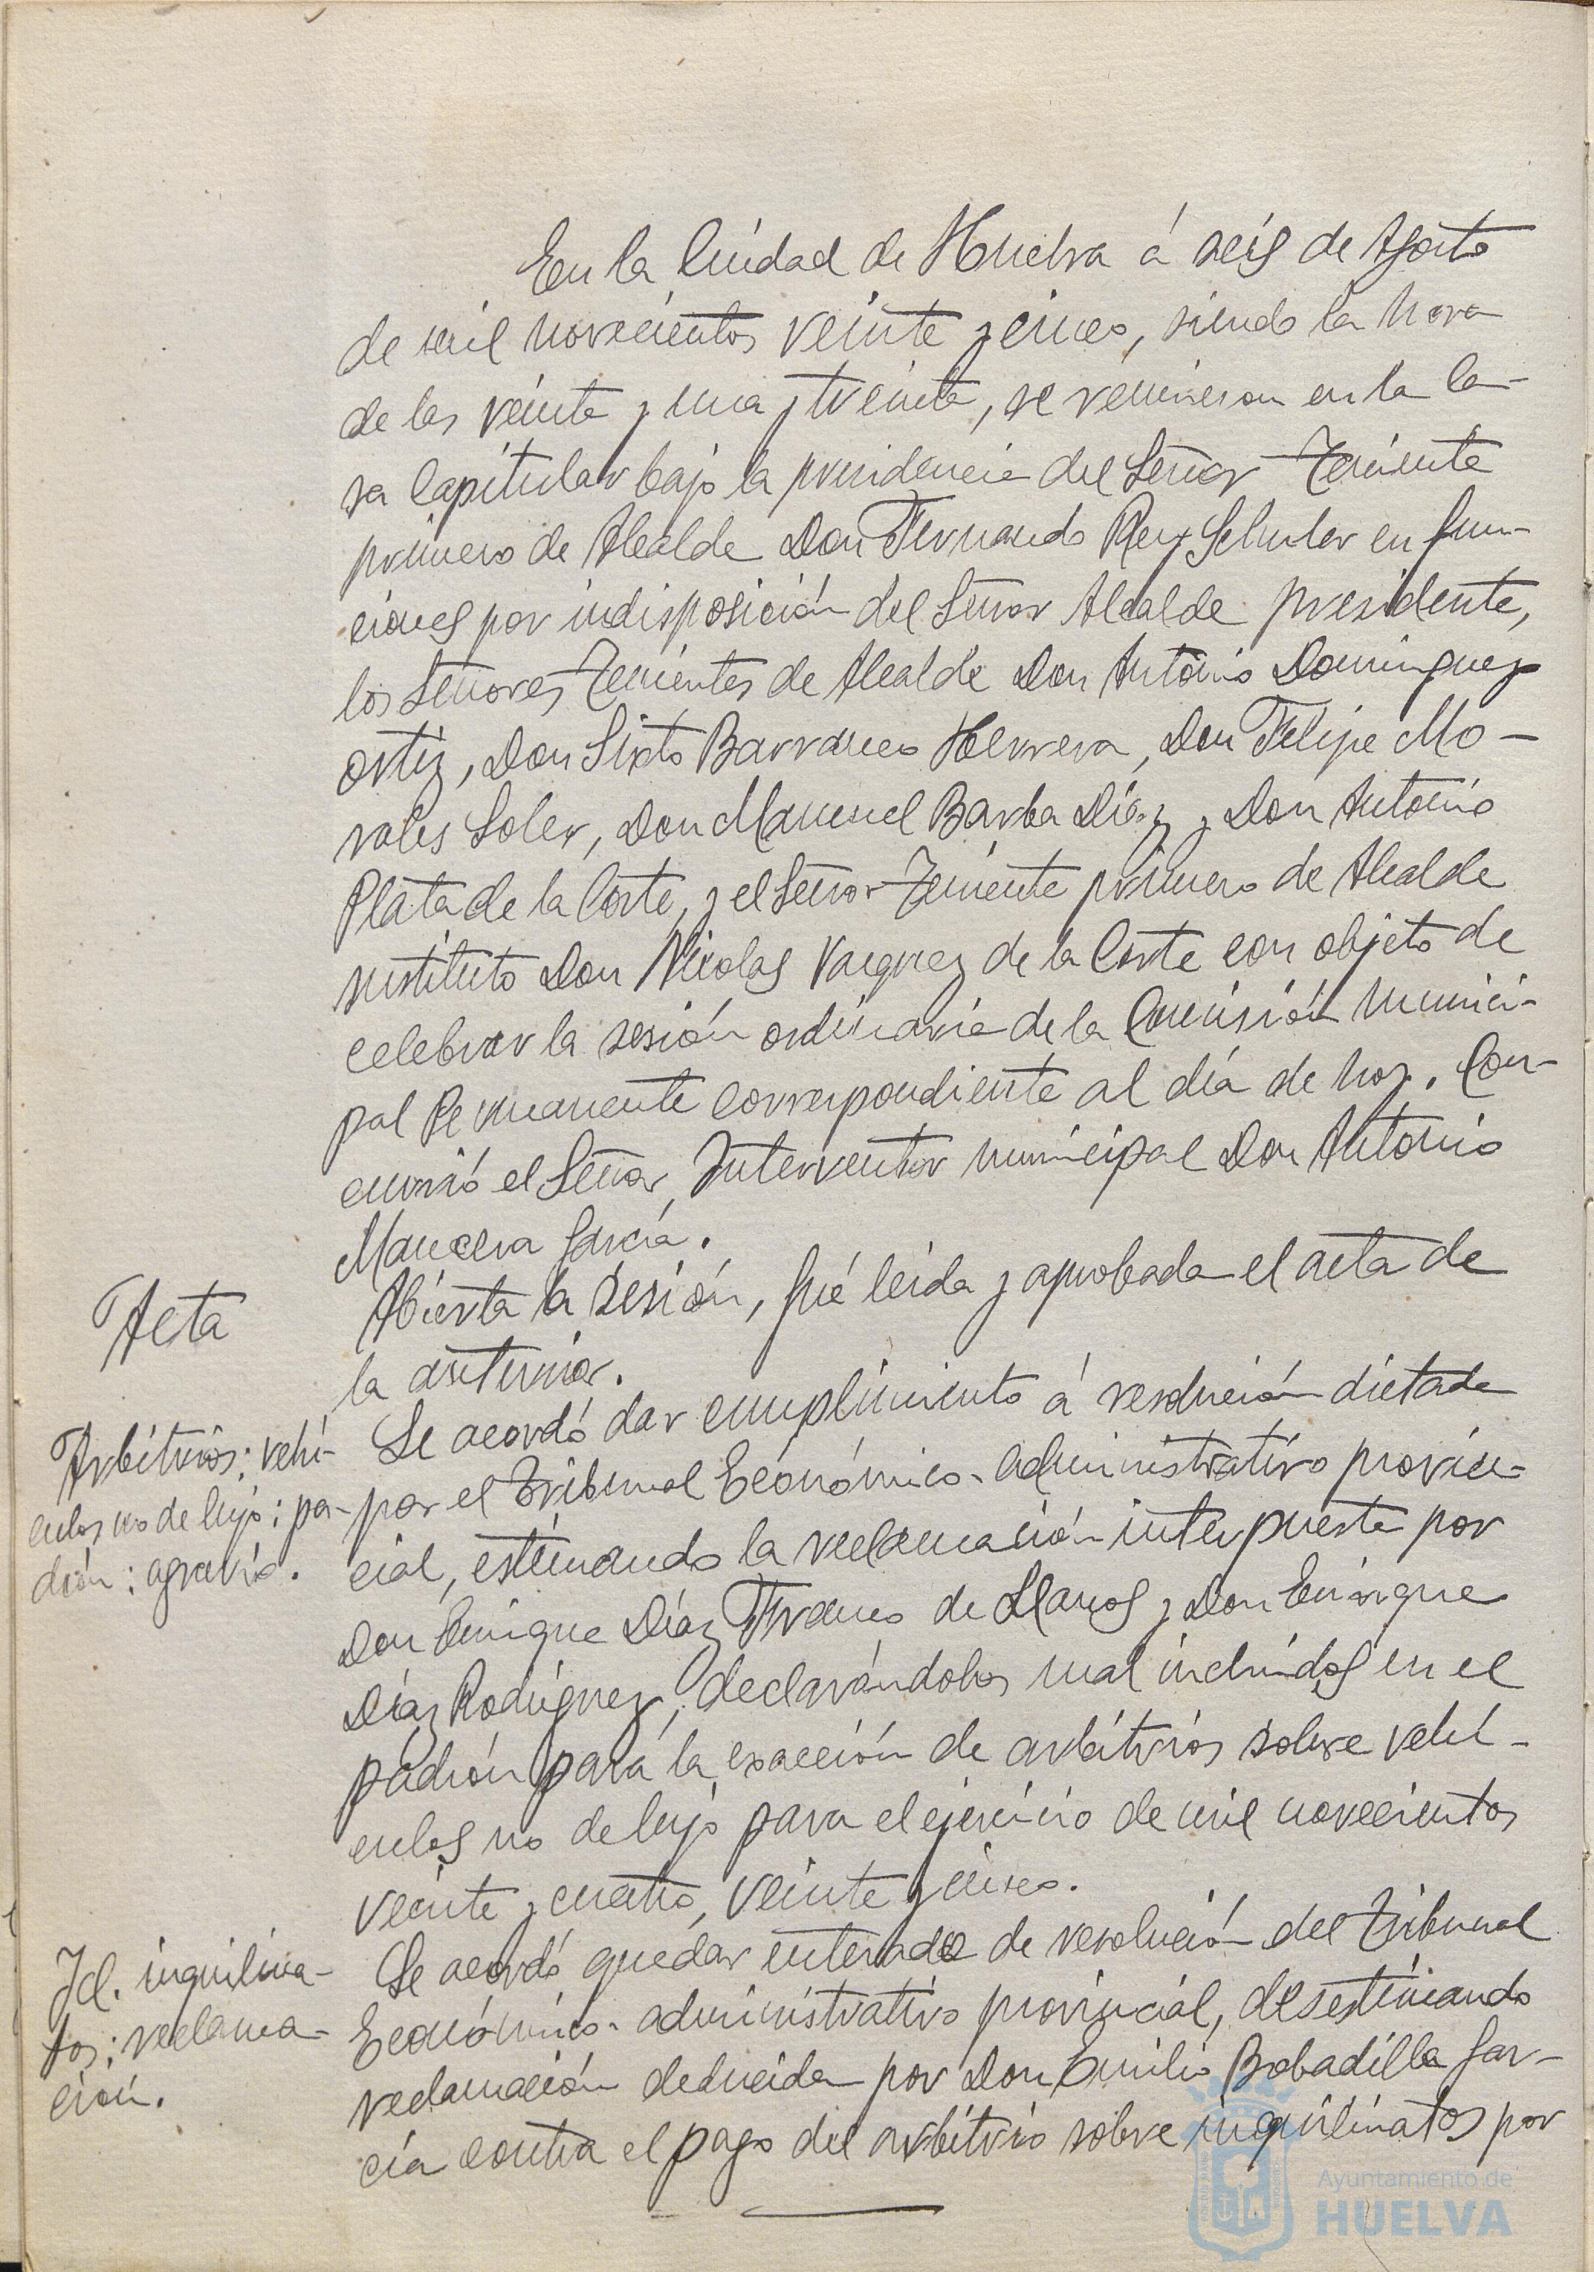 En la Ciudad de Huelva á seis de Agosto
de mil novecientos veinte y cinco, siendo la hora
de las veinte y una y treinta, se reunieron en la Ca-
sa Capitular bajo la presidencia del Señor Teniente
primero de Alcalde Don Fernando Rey Schuler en fun-
ciones por indisposición del Señor Alcalde presidente,
los Señores Tenientes de Alcalde Don Antonio Dominguez
Ortiz, Don Sixto Barranco Herrera, Don Felipe Mo-
rales Soler, Don Manuel Barba Díaz y Don Antonio
Plata de la Corte, y el Señor Teniente primero de Alcalde
sustituto Don Nicolas Vazquez de la Corte con objeto de
celebrar la sesión ordinaria de la Comisión munici-
pal Permanente correspondiente al día de hoy. Con-
currió el Señor Interventor municipal Don Antonio
Mancera García.
Acta
Abierta la sesión, fué leida y aprobada el acta de
la anterior.
Arbitrios: vehi-
culos no de lujo: pa-
drón: agravio.
Se acordó dar cumplimiento á resolución dictada
por el Tribunal Económico-administrativo provin-
cial, estimando la reclamación interpuesta por
Don Enrique Díaz Franco de Llanos y Don Enrique
Díaz Rodríguez, declarándolos mal incluídos en el
padrón para la exacción de arbitrios sobre vehí-
culos no de lujo para el ejercicio de mil novecientos
veinte y cuatro, veinte y cinco.
Id. inquilina-
tos: reclama-
ción.
Se acordó quedar enterado de resolución del Tribunal
Económico-administrativo provincial, desestimando
reclamación deducida por Don Emilio Bobadilla Gar-
cía contra el pago del arbitrio sobre inquilinatos por
Ayuntamiento de
HUELVA